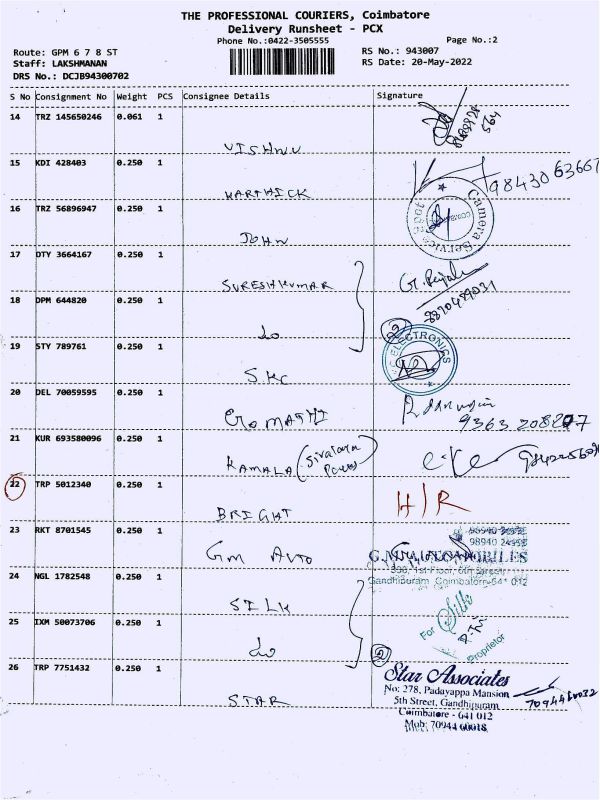 THE PROFESSIONAL COURIERS, Coimbatore
Delivery Runsheet - PCX
Phone No.:0422-3505555
Page No.:2
Route: GPM 6 7 8 ST
RS No.: 943007
Staff: LAKSHMANAN
RS Date: 20-May-2022
DRS No.: DCJB94300702
S No Consignment No Weight PCS Consignee Details Signature
14 TRZ 145650246 0.061 1
VISHNU
15 KDI 428403 0.250 1
9843063667
KARTHICK
16 TRZ 56896947 0.250 1
Camera Service
JOHN
17 DTY 3664167 0.250 1
SURESHKUMAR
18 DPM 644820 0.250 1
do
2
19 STY 789761 0.250 1
ELECTRONICS
SKC
20 DEL 70059595 0.250 1
GOMATHI
9363 208207
21 KUR 693580096 0.250 1
KAMALA
22 TRP 5012340 0.250 1
H/R
BRIGHT
23 RKT 8701545 0.250 1
98940
98940
GM AUTO
1st Floor,
Gandhipuram, Coimbatore-641 012
24 NGL 1782548 0.250 1
SILK
For Silk
25 IXM 50073706 0.250 1
do
Proprietor
2
26 TRP 7751432 0.250 1
Star Associates
No: 278, Padayappa Mansion
5th Street, Gandhipuram
STAR
7094460032
Coimbatore - 641 012
Mob: 70944 60018